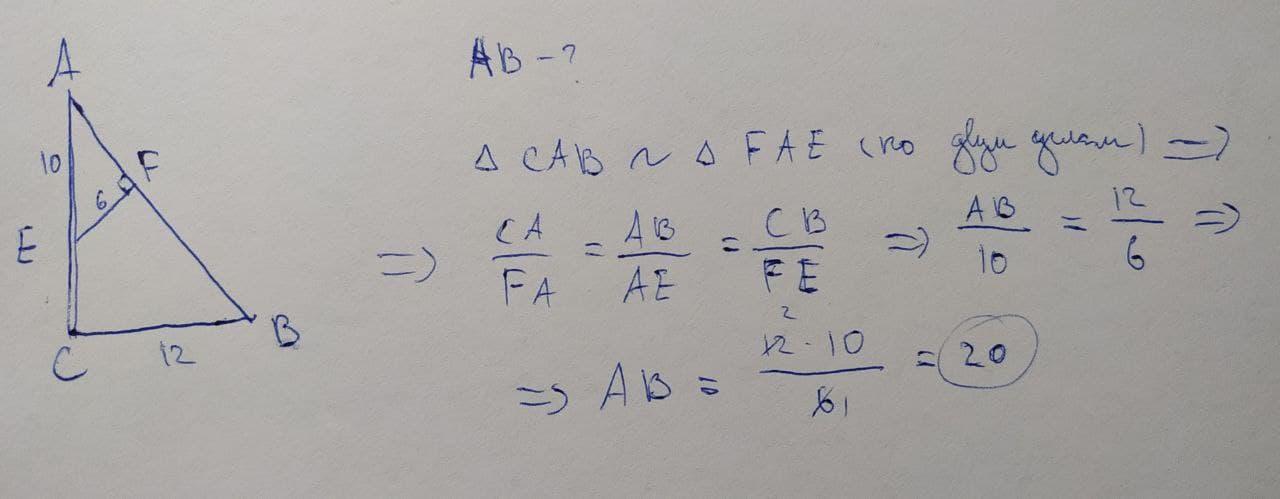 A
10
F
6
E
C
12
B
AB - ?
Δ CAB ~ Δ FAE (по двум углам) =>
=> CA/FA = AB/AE = CB/FE => AB/10 = 12/6 =>
=> AB = 12 · 10/6 = 20
2
1